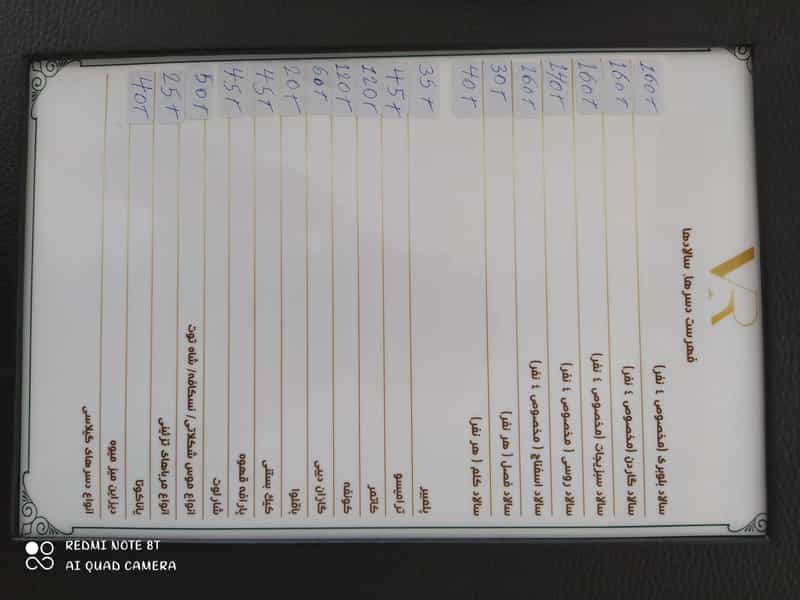 VR
فهرست دسرها، سالادها
سالاد بلوبری (مخصوص ٤ نفر) 160т
سالاد گاردن (مخصوص ٤ نفر) 160т
سالاد سبزیجات (مخصوص ٤ نفر) 160т
سالاد روسی ( مخصوص ٤ نفر) 140т
سالاد اسفناج ( مخصوص ٤ نفر) 160т
سالاد فصل ( هر نفر) 30т
سالاد کلم ( هر نفر) 40т
پلمبیر 35т
ترامیسو 45т
کاتمر 120т
کونفه 120т
گاران دبی 60т
باقلوا 20т
کیک بستنی 45т
پارافه قهوه 45т
شارلوت
انواع موس شکلاتی/ نسکافه/ شاه توت 50т
انواع مرباهای تزئینی 25т
پاناکوتا 40т
دیزاین میز میوه
انواع دسرهای گیلاسی
REDMI NOTE 8T
AI QUAD CAMERA